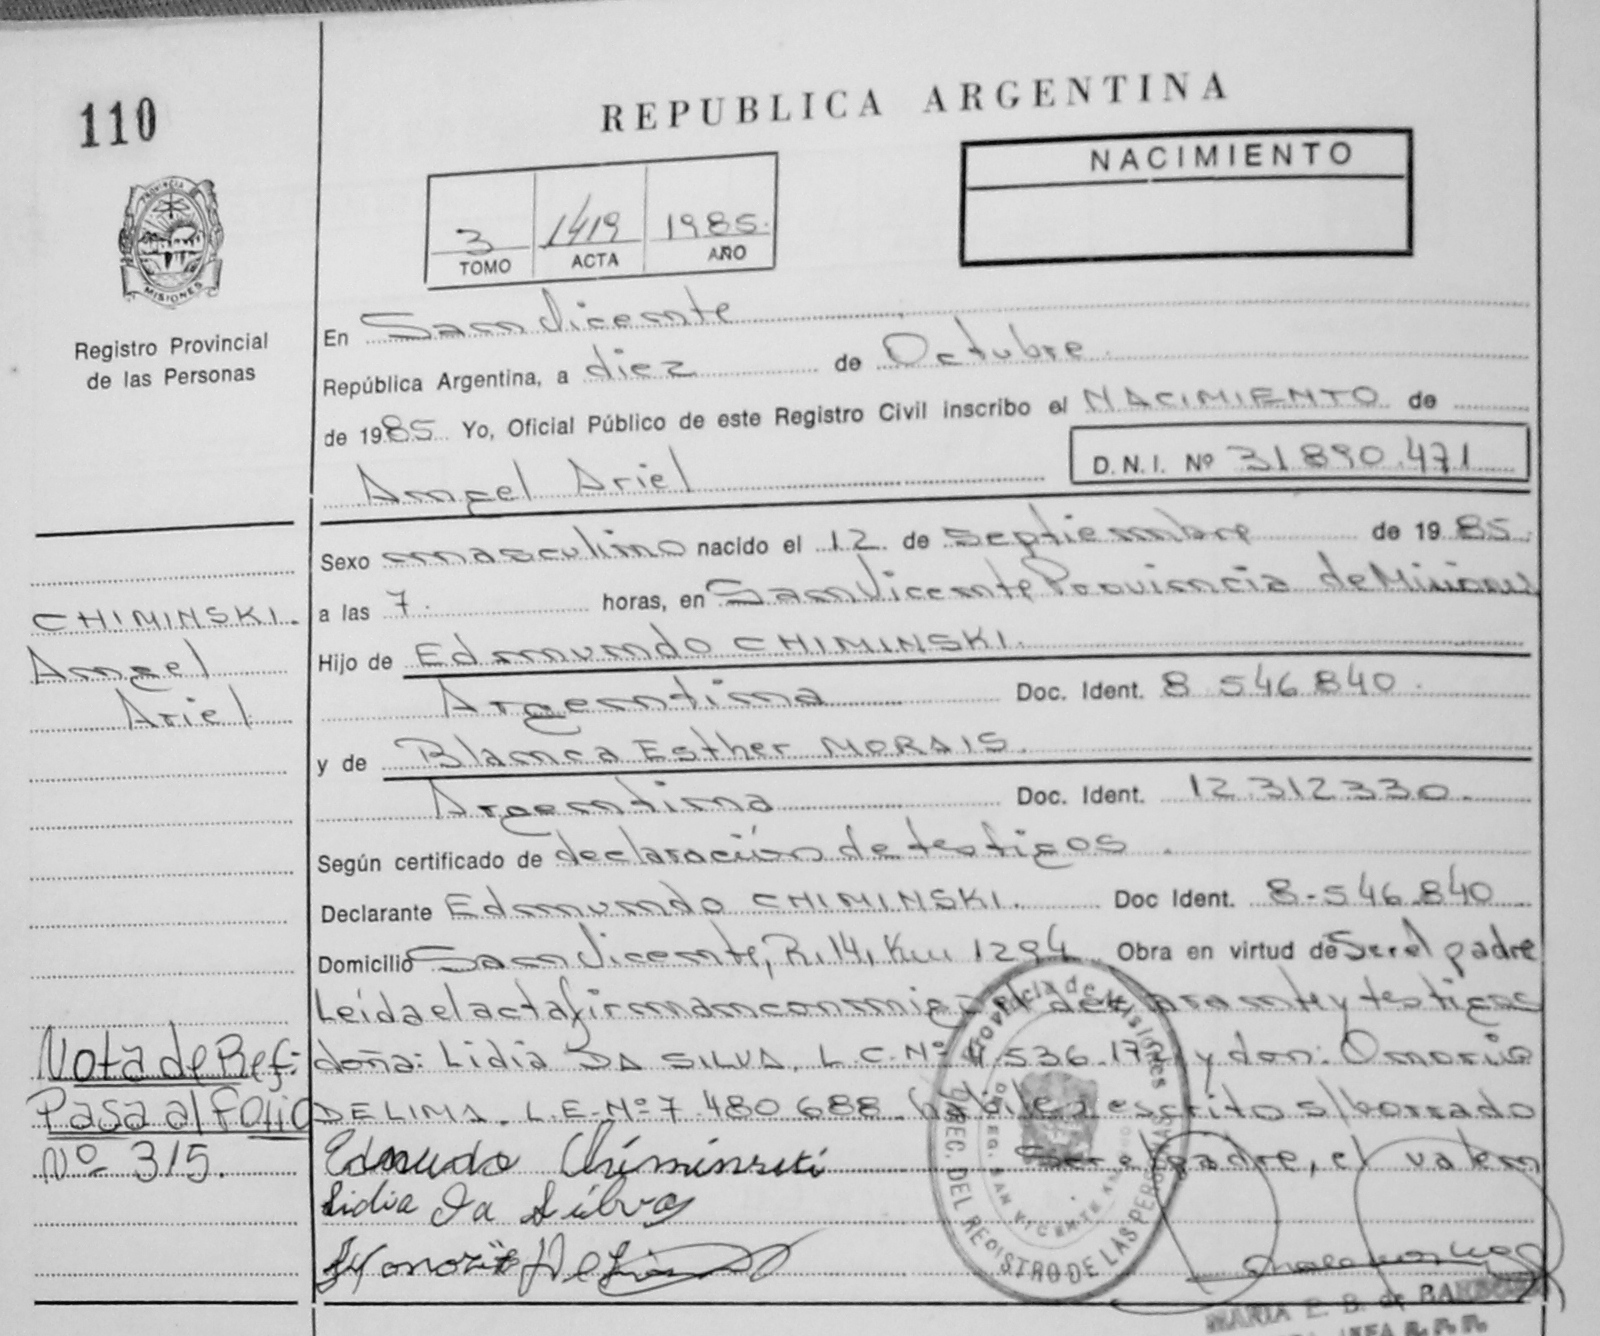 110
REPUBLICA ARGENTINA
NACIMIENTO
3 1419 1985.
TOMO ACTA AÑO
PROVINCIA
MISIONES
Registro Provincial
de las Personas
En San Vicente
República Argentina, a diez de Octubre
de 1985 Yo, Oficial Público de este Registro Civil inscribo el NACIMIENTO de
Angel Ariel D.N.I. Nº 31890.471
Sexo masculino nacido el 12 de septiembre de 1985.
a las 7. horas, en San Vicente Provincia de Misiones
Hijo de Edmundo CHIMINSKI.
Argentina Doc. Ident. 8 546 840.
y de Blanca Esther MORAIS.
Argentina Doc. Ident. 12 312 330.
Según certificado de declaración de testigos.
Declarante Edmundo CHIMINSKI. Doc Ident. 8.546.840
Domicilio San Vicente, R. 14, Km 1294 Obra en virtud de Ser el padre
Leída el acta firman conmigo el declarante y testigos
doña: Lidia DA SILVA, L.C. Nº y don:
DE LIMA. L.E. Nº 7.480.688. escrito s/borrado
Ser el padre, el valen
CHIMINSKI.
Angel
Ariel
Nota de Ref:
Pasa al Folio
Nº 315.
Edmundo Chiminski
Lidia Da Silva
De Lima
Provincia de Misiones
DEL REGISTRO DE LAS PERSONAS
SAN VICENTE
MARIA E. B. de